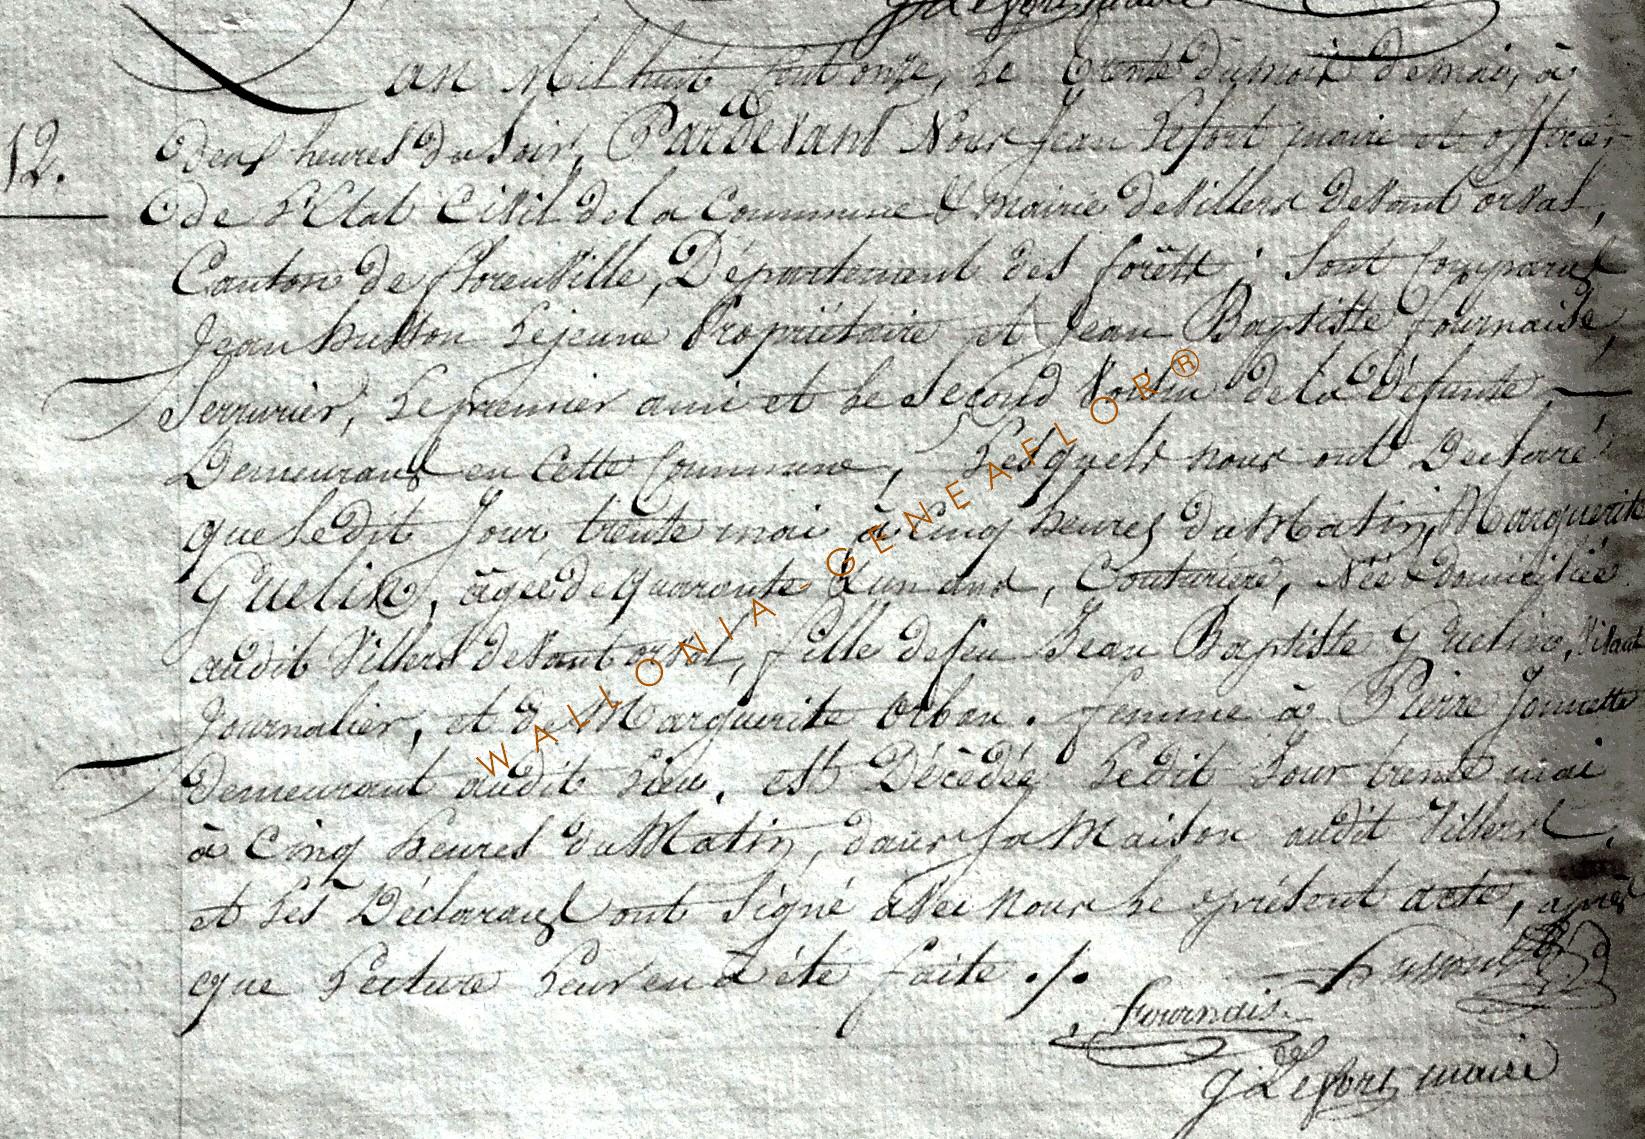 G Lefort maire
L'an Mil huit Cent onze, Le trente du mois de mai, à
12.
deux heures du Soir, Pardevant Nous Jean Lefort maire et officier
de L'Etat Civil de la Commune & mairie de Villers devant orval,
Canton de florenville, Département des forêts ; Sont Comparus
Jean husson Lejeune Propriétaire et Jean Baptiste fournaise,
Serrurier, Le premier ami et Le Second Voisin de la Défunte
Demeurans en Cette Commune, Lesquels nous ont Declarré
que Ledit Jour trente mai à Cinq heures du Matin, Marguerite
Guelin, âgée de quarante & un ans, Couturière, Née & domiciliée
audit Villers devant orval, fille de feu Jean Baptiste Guelin, Vivant
Journalier, et de Marguerite Orban. femme à Pierre Jonnette
Demeurant audit Lieu, est Décédée Ledit Jour trente mai
à Cinq heures du Matin, dans Sa Maison audit Villers,
et Les Déclarans ont Signé avec nous Le présent acte, après
que Lecture Leur en a été faite ./.
husson
fournais
G Lefort maire
WALLONIA-GENEAFLOR®